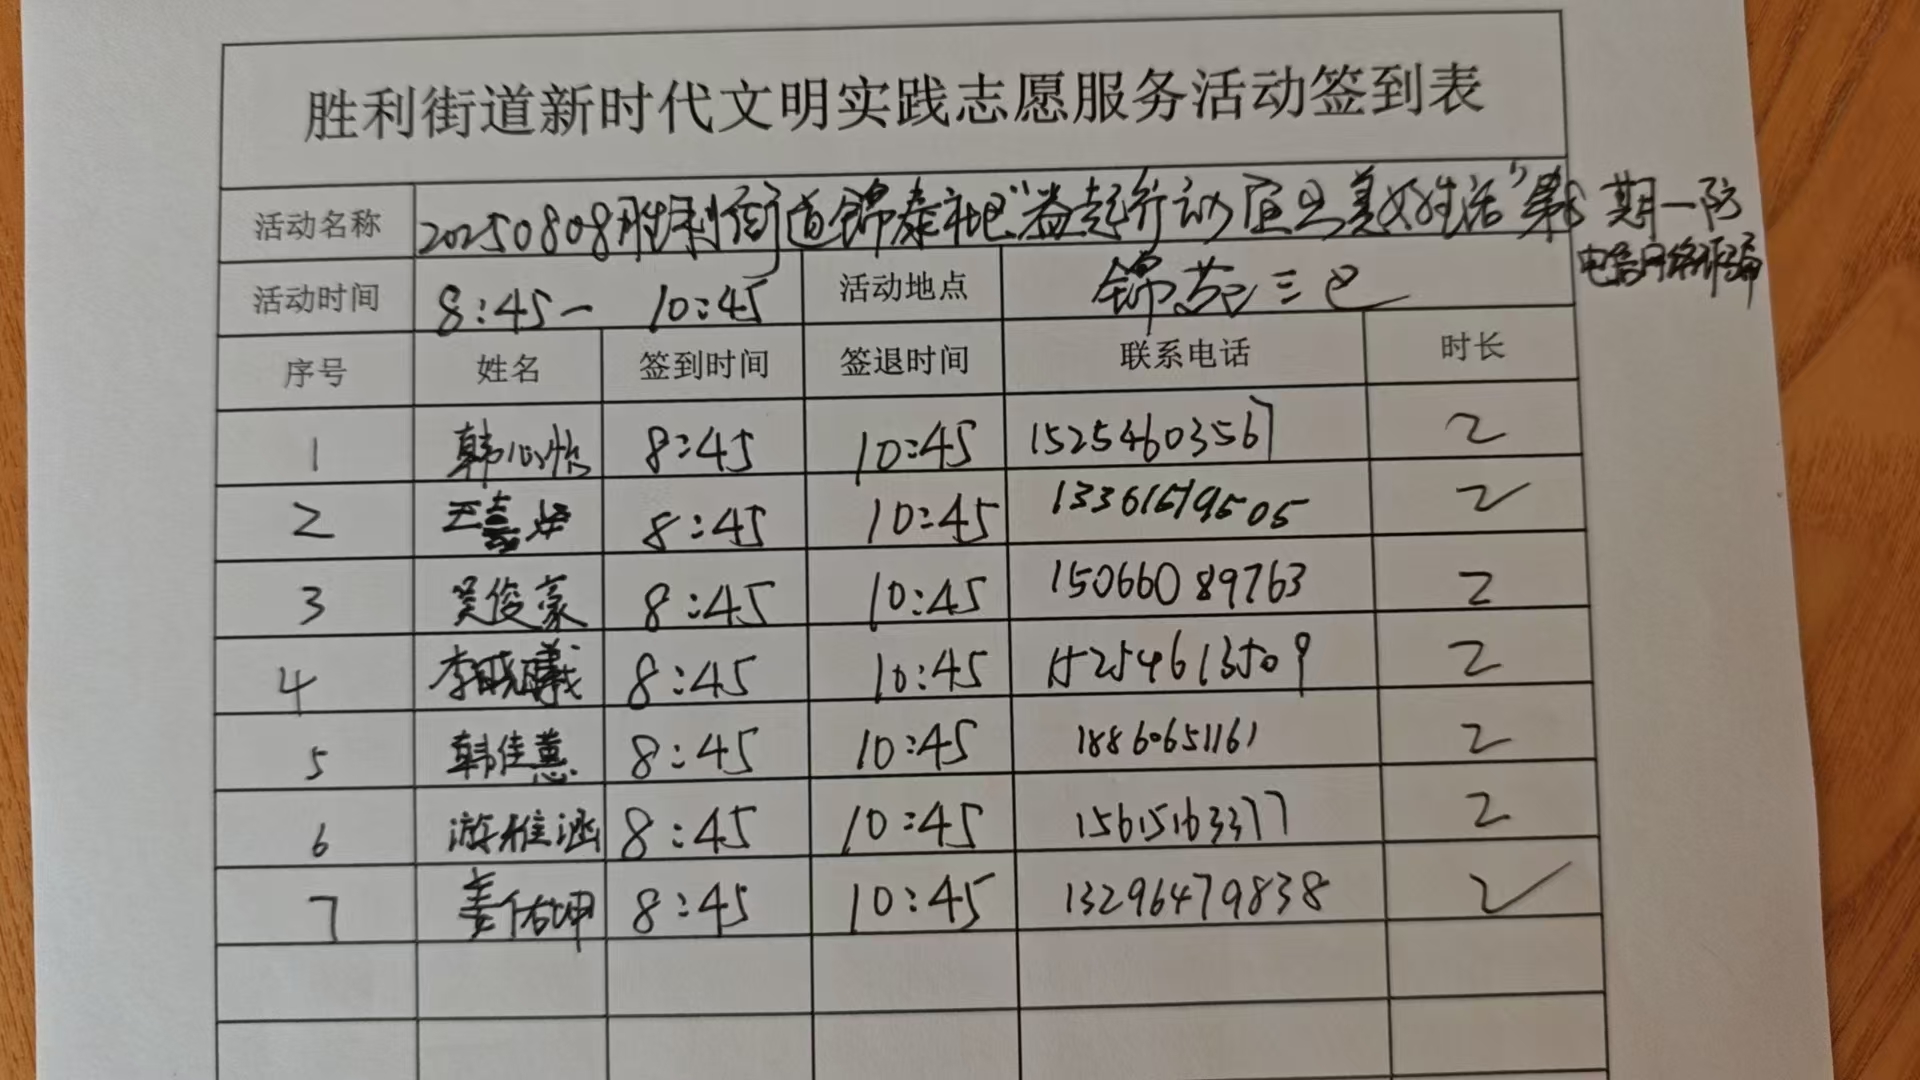 胜利街道新时代文明实践志愿服务活动签到表
活动名称 20250808胜利街道锦泰社区“益起行动 宜起美好生活”第8期一防
电信网络诈骗
活动时间 8:45一 10:45 活动地点 锦苑三区
序号 姓名 签到时间 签退时间 联系电话 时长
1 韩心怡 8:45 10:45 15254603567 2
2 王 8:45 10:45 13361519505 2
3 吴俊豪 8:45 10:45 15066089763 2
4 李晓曦 8:45 10:45 15254613509 2
5 韩佳慧 8:45 10:45 18860651161 2
6 游雅涵 8:45 10:45 15615163377 2
7 姜佑坤 8:45 10:45 13296479838 2